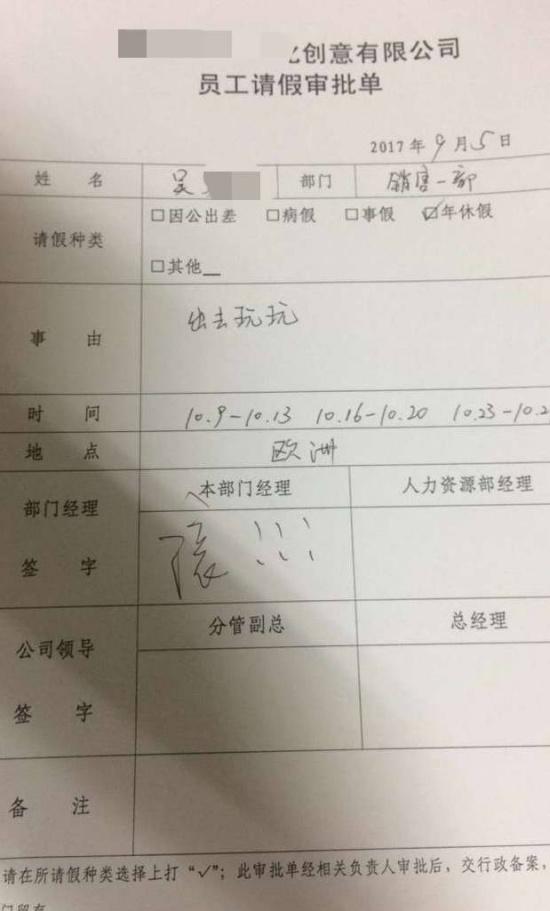 创意有限公司
员工请假审批单
2017年9月5日
姓 名 吴 部门 销售一部
请假种类 □因公出差 □病假 □事假 ☑年休假
□其他__
事 由 出去玩玩
时 间 10.9-10.13 10.16-10.20 10.23-10.2
地 点 欧洲
部门经理 本部门经理 人力资源部经理
签 字 !!!
公司领导 分管副总 总经理
签 字
备 注
请在所请假种类选择上打“√”；此审批单经相关负责人审批后，交行政备案，
门留存